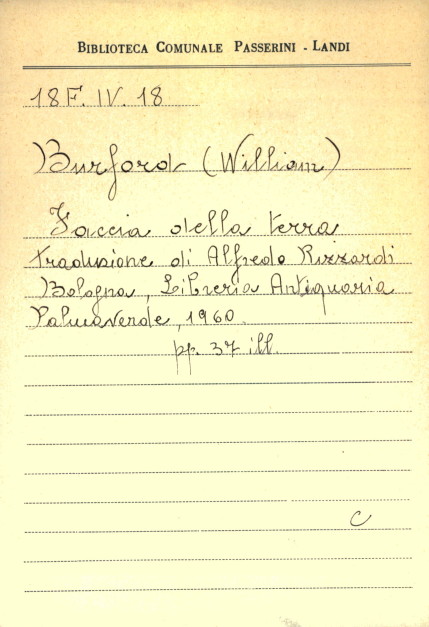 BIBLIOTECA COMUNALE PASSERINI - LANDI
18F. IV. 18
Burford (William)
Faccia della terra
traduzione di Alfredo Rizzardi
Bologna, Libreria Antiquaria
Palmaverde, 1960.
pp. 37 ill.
C